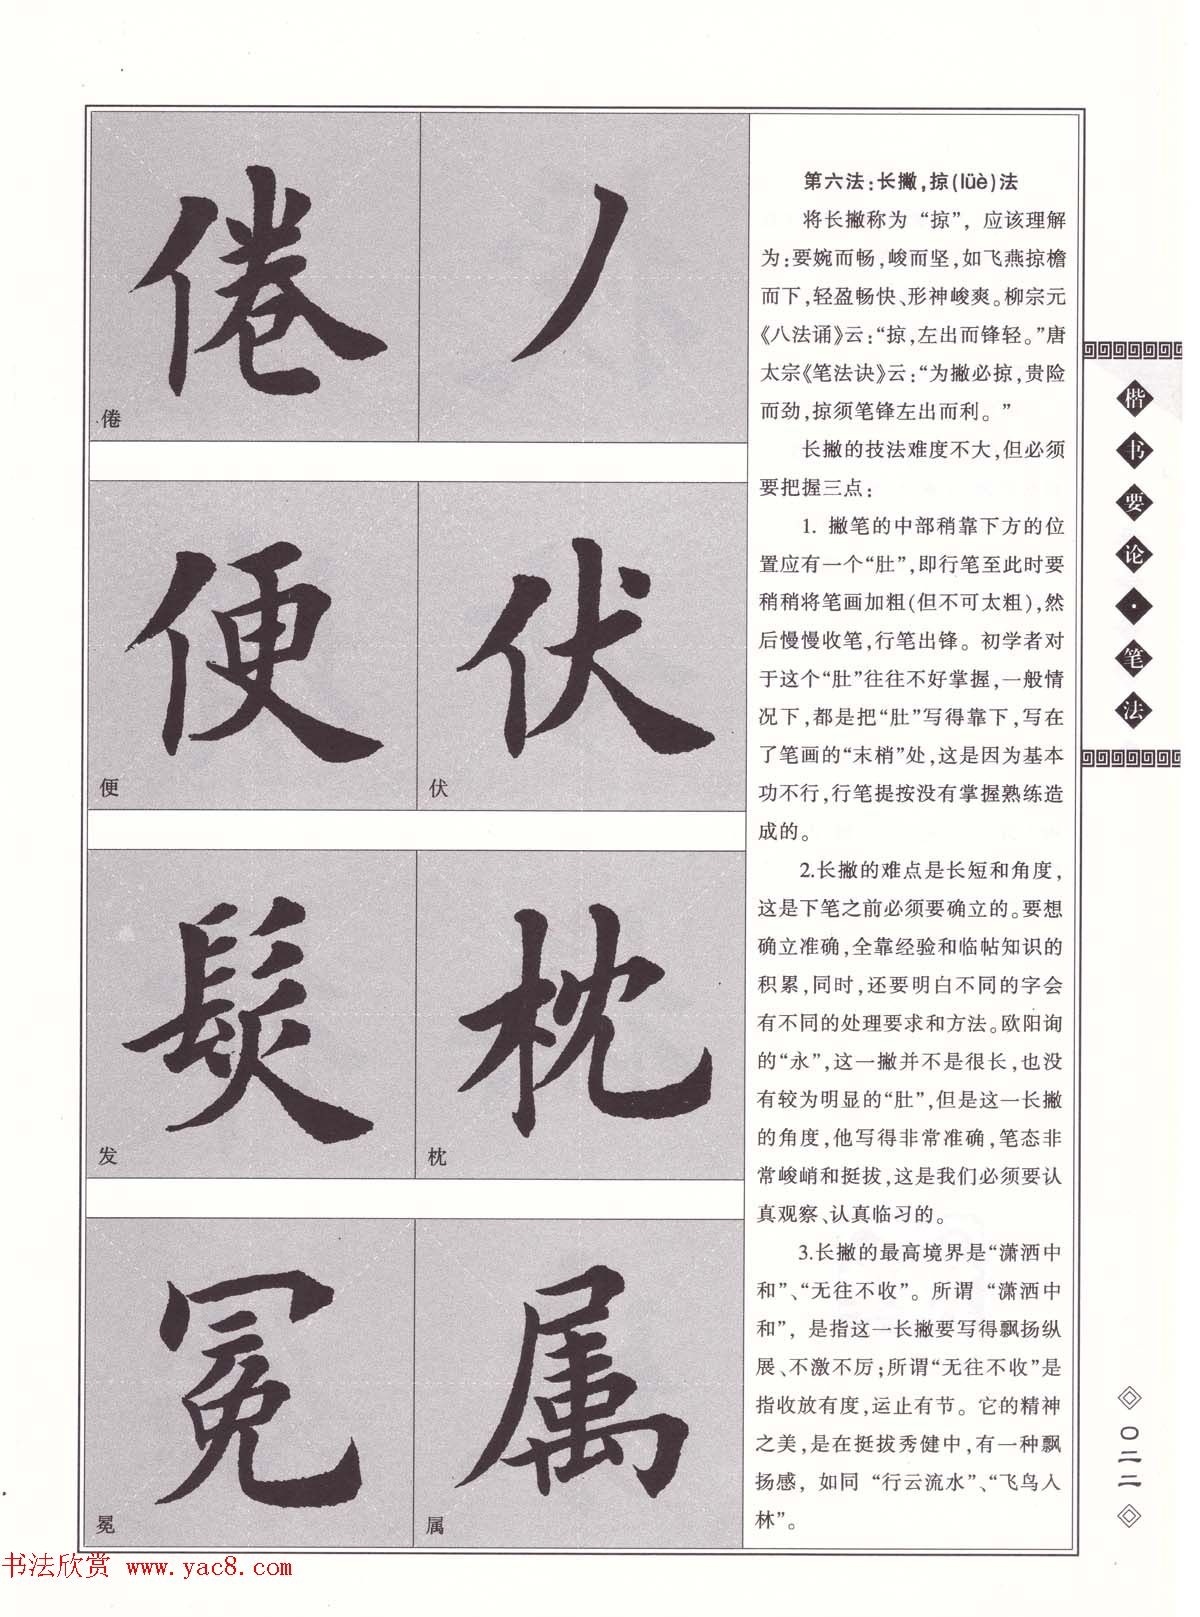 第六法:长撇,掠(lüè)法
将长撇称为“掠”，应该理解
为:要婉而畅,峻而坚,如飞燕掠檐
而下,轻盈畅快、形神峻爽。柳宗元
《八法诵》云:“掠,左出而锋轻。”唐
太宗《笔法诀》云:“为撇必掠,贵险
而劲,掠须笔锋左出而利。”
长撇的技法难度不大,但必须
要把握三点:
1. 撇笔的中部稍靠下方的位
置应有一个“肚”,即行笔至此时要
稍稍将笔画加粗(但不可太粗),然
后慢慢收笔,行笔出锋。初学者对
于这个“肚”往往不好掌握,一般情
况下,都是把“肚”写得靠下,写在
了笔画的“末梢”处,这是因为基本
功不行,行笔提按没有掌握熟练造
成的。
2.长撇的难点是长短和角度,
这是下笔之前必须要确立的。要想
确立准确,全靠经验和临帖知识的
积累,同时,还要明白不同的字会
有不同的处理要求和方法。欧阳询
的“永”,这一撇并不是很长,也没
有较为明显的“肚”,但是这一长撇
的角度,他写得非常准确,笔态非
常峻峭和挺拔,这是我们必须要认
真观察、认真临习的。
3.长撇的最高境界是“潇洒中
和”、“无往不收”。所谓“潇洒中
和”，是指这一长撇要写得飘扬纵
展、不激不厉;所谓“无往不收”是
指收放有度,运止有节。它的精神
之美,是在挺拔秀健中,有一种飘
扬感，如同“行云流水”、“飞鸟入
林”。
丿
倦
倦
伏
伏
便
便
枕
枕
髮
发
属
属
冕
冕
楷书要论·笔法
〇二二
书法欣赏 www.yac8.com